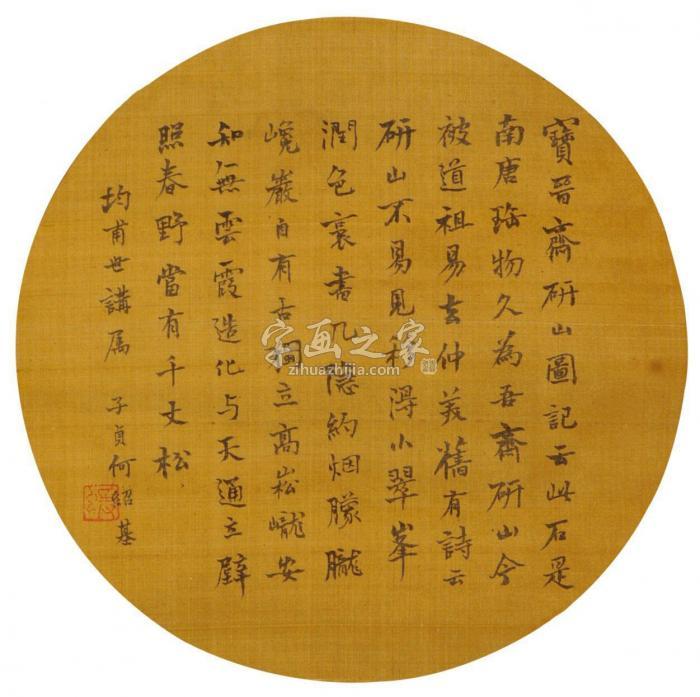 寶晉齋研山圖記云此石是
南唐珤物久為吾齋研山今
被道祖易去仲美舊有詩云
研山不易見移得小翠峯
潤色裛書几隱約烟朦朧
巉巖自有古獨立高崧巄安
知無雲霞造化与天通立壁
照春野當有千丈松
均甫世講屬 子貞何紹基
字画之家
zihuazhijia.com